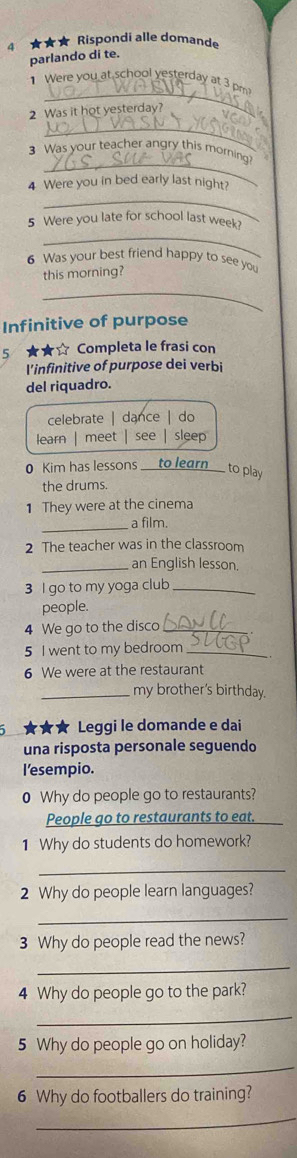 4 ★★★ Rispondi alle domande
parlando di te.
1 Were you at school yesterday at 3 pm?
2 Was it hot yesterday?
3 Was your teacher angry this morning?
4 Were you in bed early last night?
5 Were you late for school last week?
6 Was your best friend happy to see you
this morning?
Infinitive of purpose
5 ★★☆ Completa le frasi con
l'infinitive of purpose dei verbi
del riquadro.
celebrate | dance | do
learn | meet | see | sleep
0 Kim has lessons to learn to play
the drums.
1 They were at the cinema
a film.
2 The teacher was in the classroom
an English lesson.
3 I go to my yoga club
people.
4 We go to the disco .
5 I went to my bedroom SLEEP .
6 We were at the restaurant
my brother's birthday.
6 ★★★ Leggi le domande e dai
una risposta personale seguendo
l'esempio.
0 Why do people go to restaurants?
People go to restaurants to eat.
1 Why do students do homework?
2 Why do people learn languages?
3 Why do people read the news?
4 Why do people go to the park?
5 Why do people go on holiday?
6 Why do footballers do training?